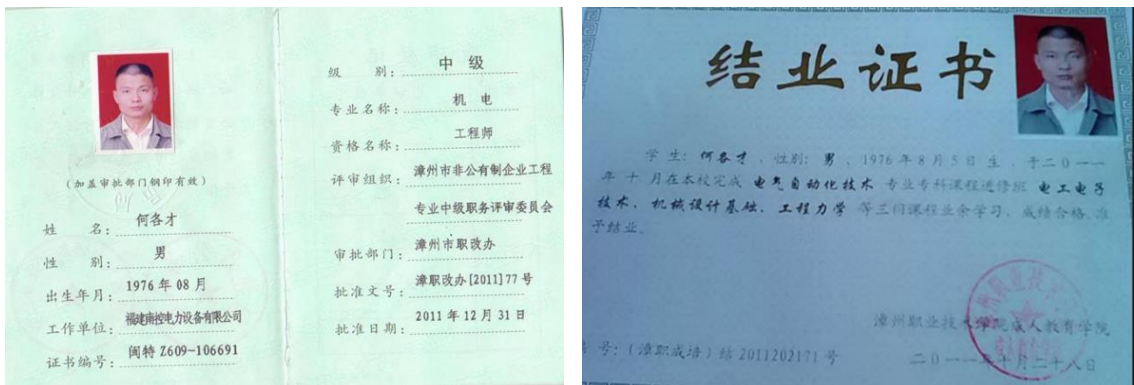 (加盖审批部门钢印有效)
姓 名: 何各才
性 别: 男
出生年月: 1976年08月
工作单位: 福建南控电力设备有限公司
证书编号: 闽特Z609-106691
级 别: 中级
专业名称: 机电
资格名称: 工程师
评审组织: 漳州市非公有制企业工程
专业中级职务评审委员会
审批部门: 漳州市职改办
批准文号: 漳职改办[2011]77号
批准日期: 2011年12月31日
结业证书
学生:何各才,性别:男,1976年8月5日生,于二〇一一
年十月在本校完成 电气自动化技术 专业专科课程进修班 电工电子
技术、机械设计基础、工程力学 等三门课程业余学习,成绩合格,准
予结业。
漳州职业技术学院成人教育学院
号:(漳职成培)结2011202171号
二〇一一年十月二十八日